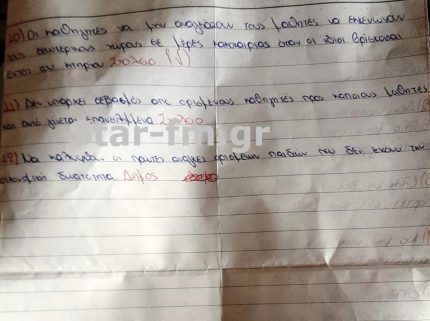 10) Οι καθηγητές να μην αναγκάζουν τους μαθητές να εκκενώνουν
τους εσωτερικούς χώρους σε μέρες κακοκαιρίας όταν οι ίδιοι βρίσκονται
εντός του κτηρίου Σχολείο (√)
11) Δεν υπάρχει σεβασμός από ορισμένους καθηγητές προς κάποιους μαθητές
και αυτό γίνεται επανειλημμένα Σχολείο
star-fm.gr
Να καλυφθούν οι πρώτες ανάγκες ορισμένων παιδιών που δεν έχουν την
οικονομική δυνατότητα. Δήμος